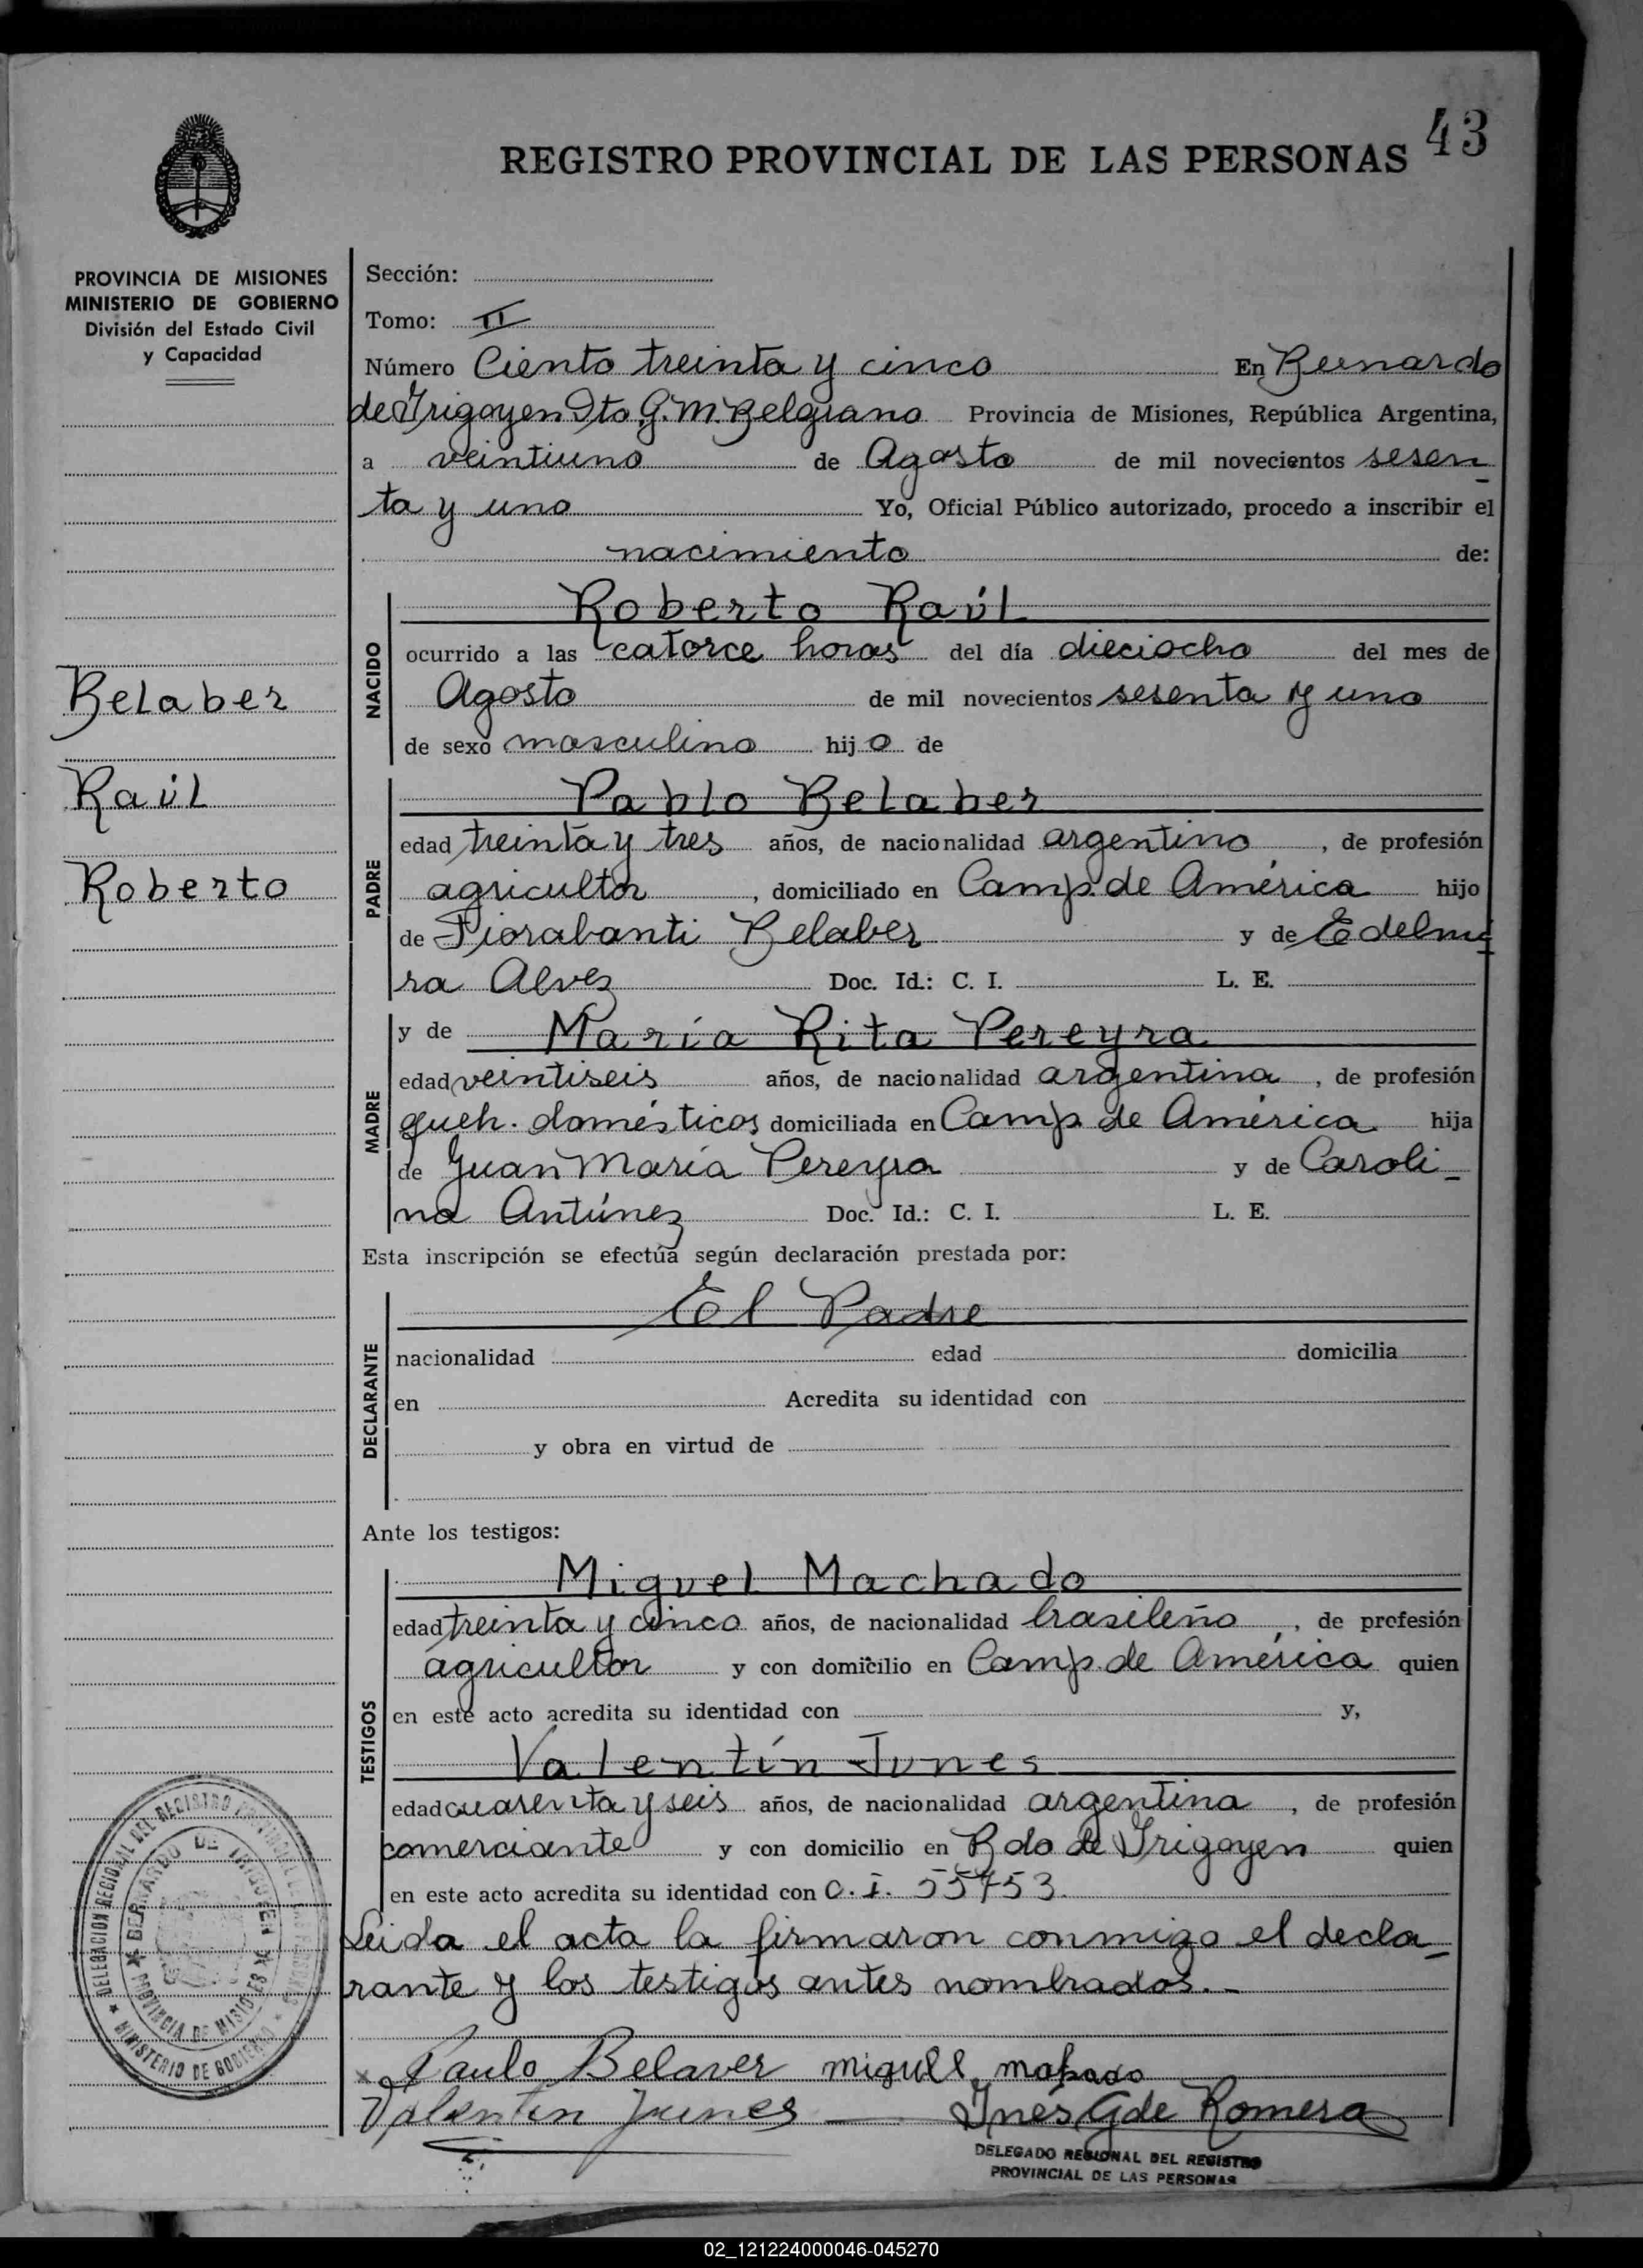 43
REGISTRO PROVINCIAL DE LAS PERSONAS
PROVINCIA DE MISIONES
MINISTERIO DE GOBIERNO
División del Estado Civil
y Capacidad
Belaber
Raúl
Roberto
Sección:
Tomo: II
Número Ciento treinta y cinco En Bernardo
de Irigoyen Dto G. M. Belgrano Provincia de Misiones, República Argentina,
a veintiuno de Agosto de mil novecientos sesen
ta y uno Yo, Oficial Público autorizado, procedo a inscribir el
nacimiento de:
NACIDO
Roberto Raúl
ocurrido a las catorce horas del día dieciocho del mes de
Agosto de mil novecientos sesenta y uno
de sexo masculino hijo de
PADRE
Pablo Belaber
edad treinta y tres años, de nacionalidad argentino, de profesión
agricultor, domiciliado en Camp. de América hijo
de Fiorabanti Belaber y de Edelmi
ra Alvez Doc. Id.: C. I. L. E.
MADRE
y de María Rita Pereyra
edad veintiseis años, de nacionalidad argentina, de profesión
queh. domésticos domiciliada en Camp. de América hija
de Juan María Pereyra y de Caroli_
na Antúnez Doc. Id.: C. I. L. E.
Esta inscripción se efectúa según declaración prestada por:
DECLARANTE
El Padre
nacionalidad edad domicilia
en Acredita su identidad con
y obra en virtud de
Ante los testigos:
TESTIGOS
Miguel Machado
edad treinta y cinco años, de nacionalidad brasileño, de profesión
agricultor y con domicilio en Camp. de América quien
en este acto acredita su identidad con y,
Valentín Junes
edad cuarenta y seis años, de nacionalidad argentina, de profesión
comerciante y con domicilio en Bdo de Irigoyen quien
en este acto acredita su identidad con C. I. 55753.
Leida el acta la firmaron conmigo el decla_
rante y los testigos antes nombrados._
Paulo Belaver miguel
Valentin Junes Inés G de Romero
DELEGADO REGIONAL DEL REGISTRO
PROVINCIAL DE LAS PERSONAS
DELEGACION REGIONAL DEL REGISTRO PROVINCIAL DE LAS PERSONAS
BERNARDO DE IRIGOYEN
PROVINCIA DE MISIONES
MINISTERIO DE GOBIERNO
02_121224000046-045270